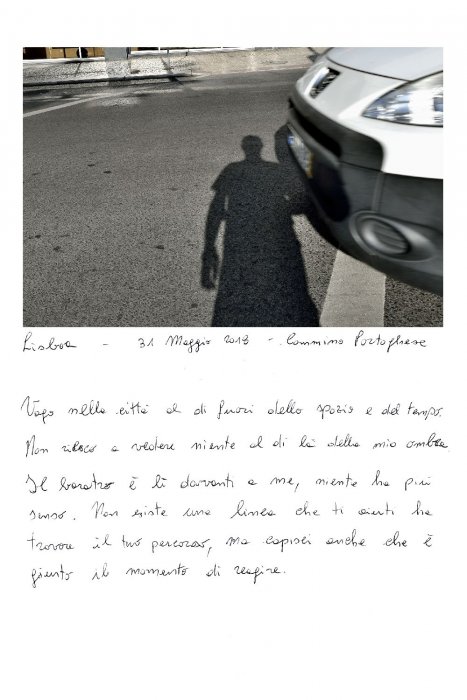 Lisboa - 31 Maggio 2018 - Cammino Portoghese
Vago nella città al di fuori dello spazio e del tempo.
Non riesco a vedere niente al di là della mia ombra.
Il baratro è lì davanti a me, niente ha più
senso. Non esiste una linea che ti aiuti ha
trovare il tuo percorso, ma capisci anche che è
giunto il momento di reagire.